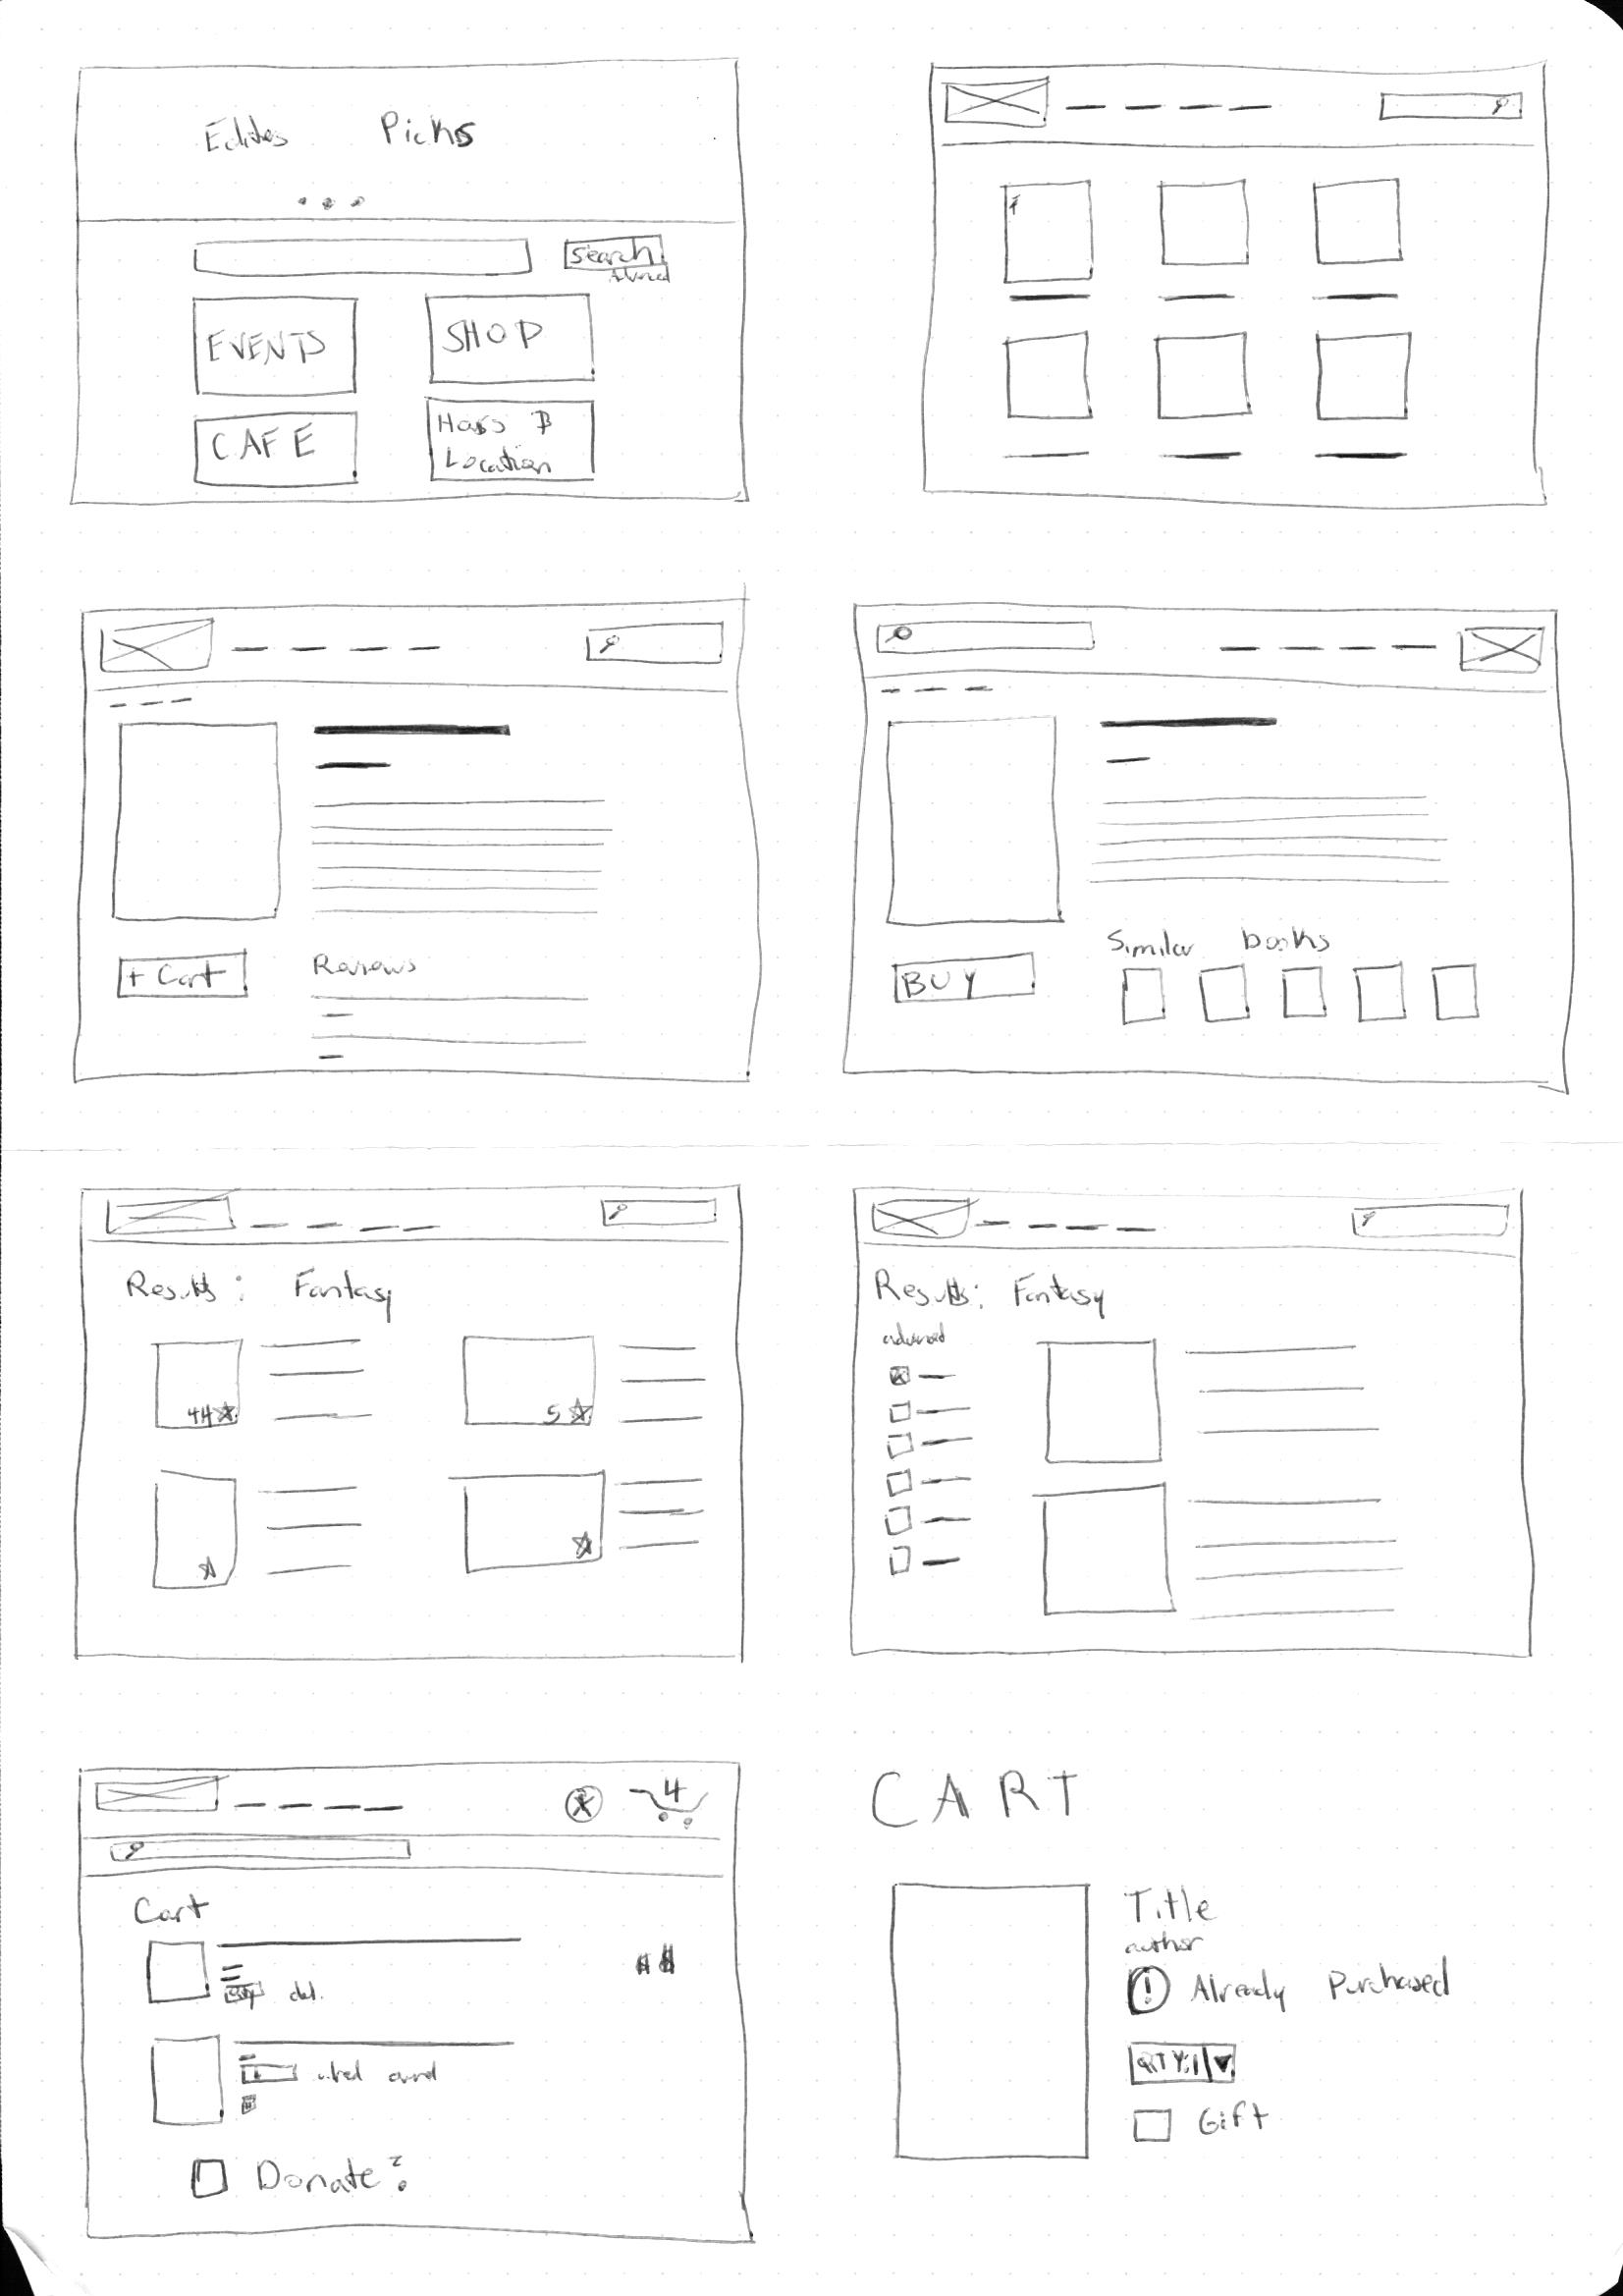 Picks
Search
EVENTS
SHOP
CAFE
Location
+ Cart
Reviews
Similar books
BUY
Results: Fantasy
5
Results: Fantasy
advanced
4
Cart
del.
Donate?
CART
Title
author
! Already Purchased
QTY:1
Gift